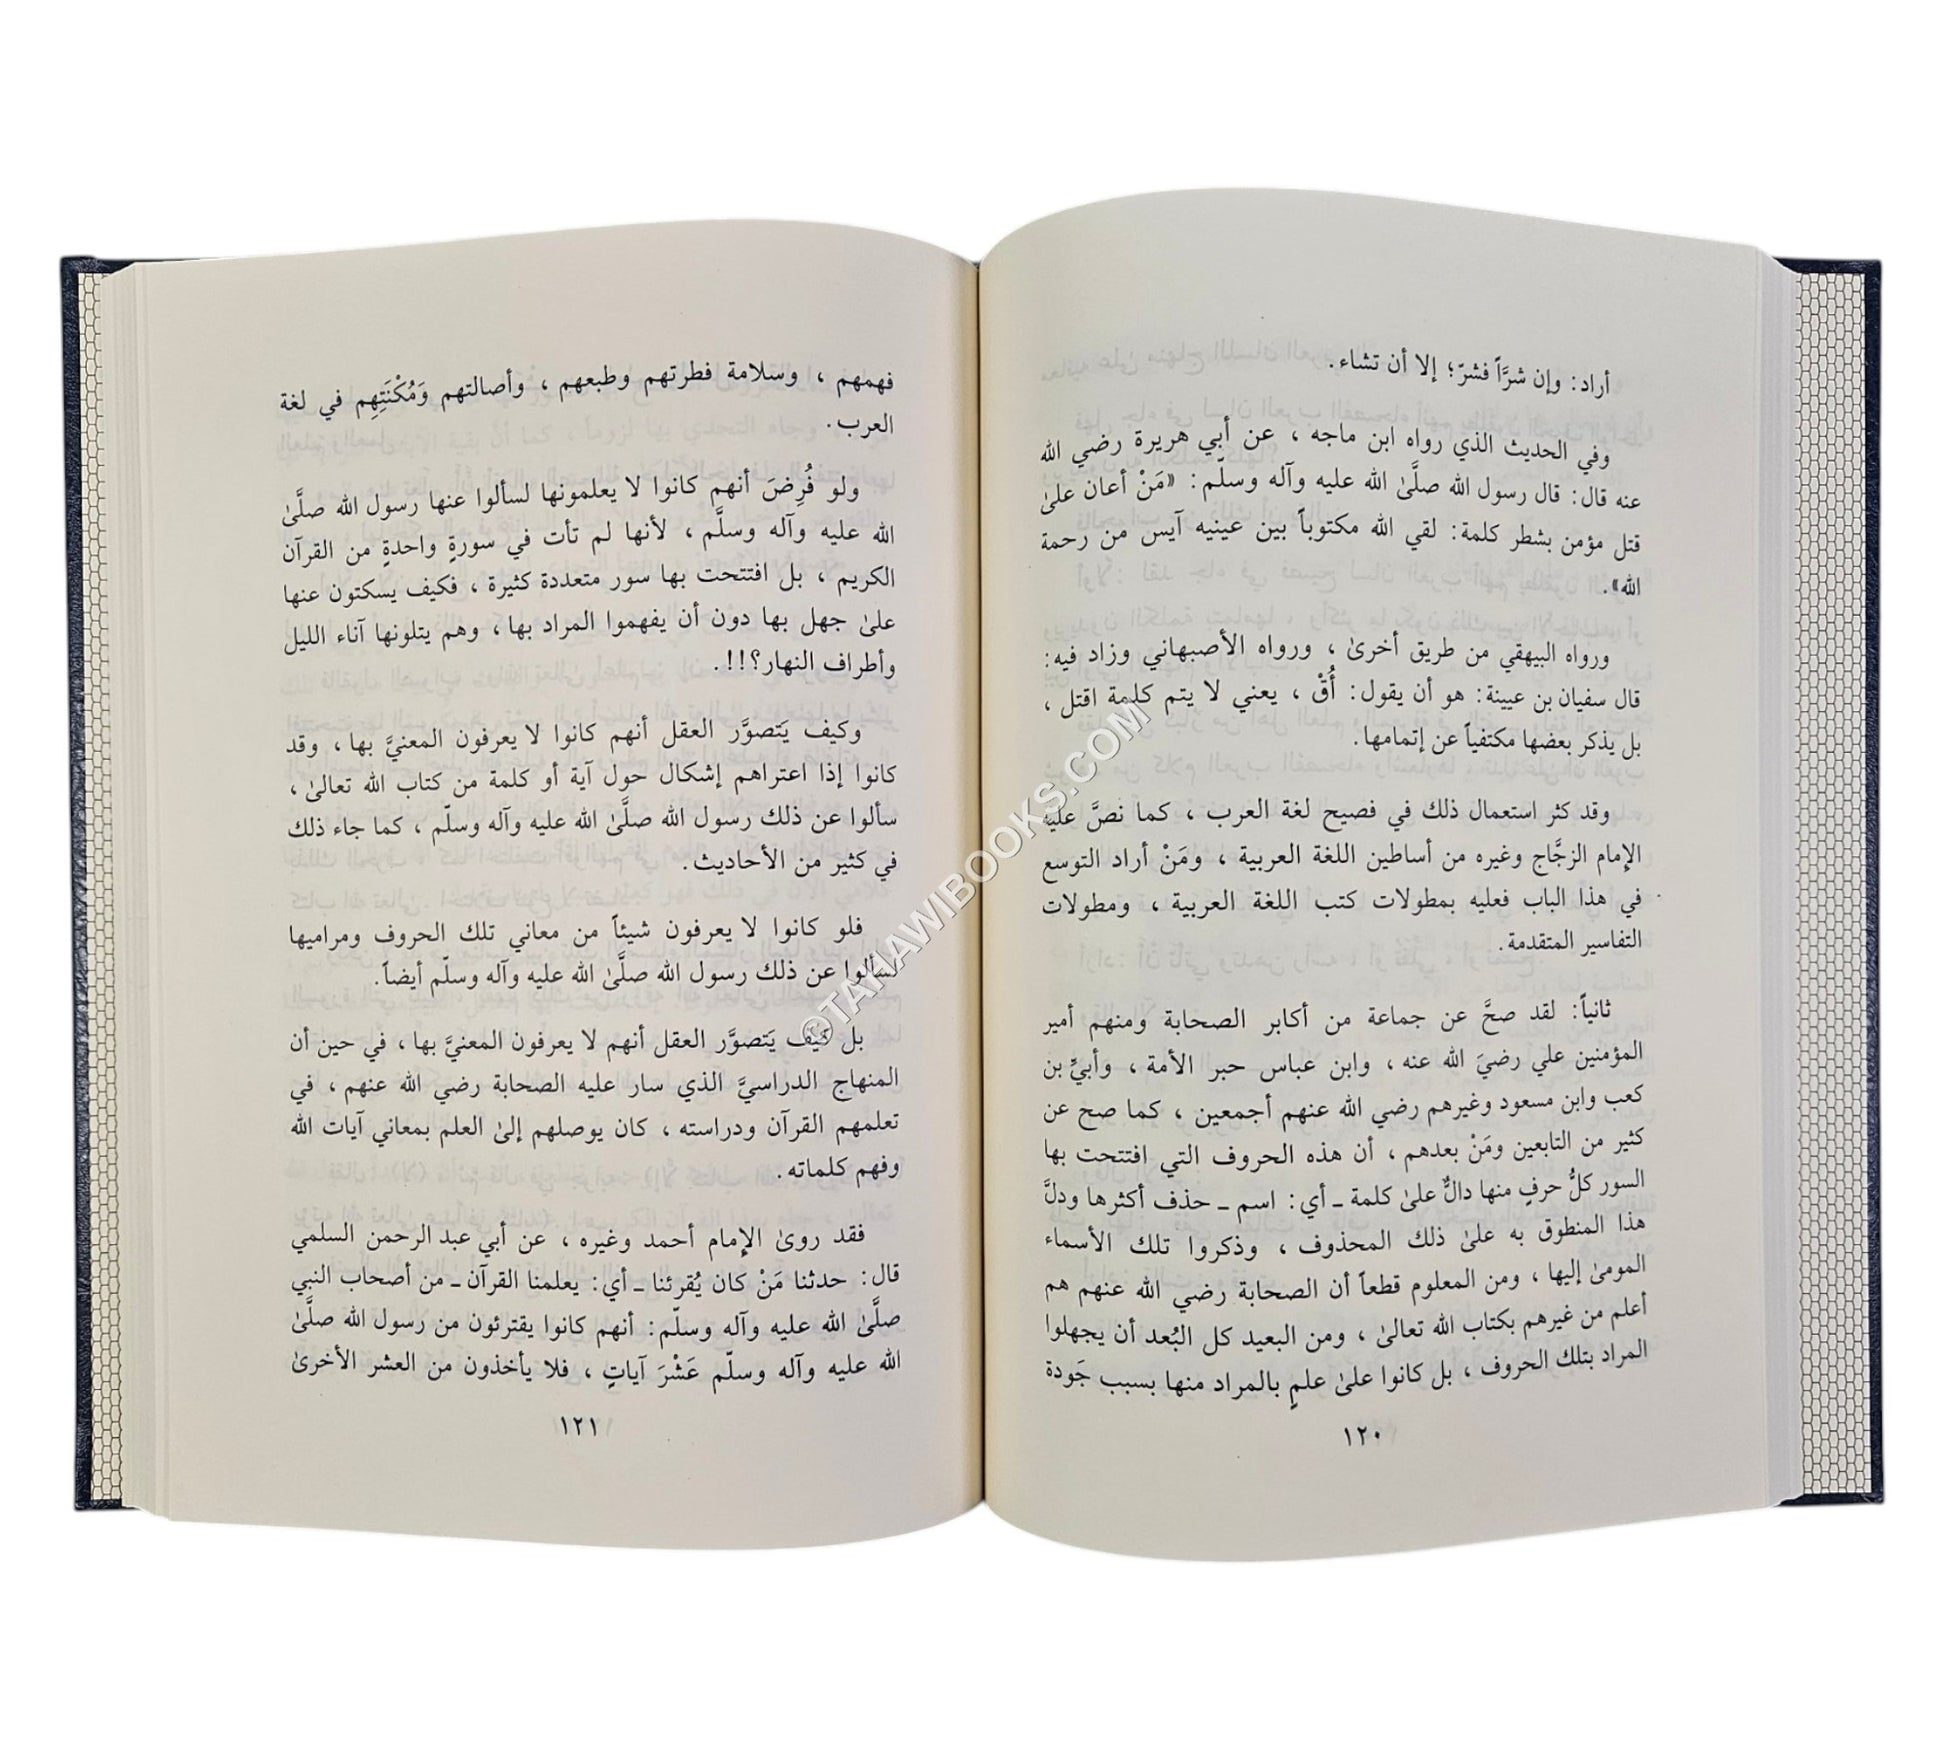 أراد: وإن شرَّاً فشرّ؛ إلا أن تشاء.
وفي الحديث الذي رواه ابن ماجه ، عن أبي هريرة رضي الله
عنه قال: قال رسول الله صلَّىٰ الله عليه وآله وسلّم: «مَنْ أعان علىٰ
قتل مؤمن بشطر كلمة: لقي الله مكتوباً بين عينيه آيس من رحمة
الله».
ورواه البيهقي من طريق أخرىٰ ، ورواه الأصبهاني وزاد فيه:
قال سفيان بن عيينة: هو أن يقول: أُقْ ، يعني لا يتم كلمة اقتل ،
بل يذكر بعضها مكتفياً عن إتمامها.
وقد كثر استعمال ذلك في فصيح لغة العرب ، كما نصَّ عليه
الإمام الزجَّاج وغيره من أساطين اللغة العربية ، ومَنْ أراد التوسع
في هذا الباب فعليه بمطولات كتب اللغة العربية ، ومطولات
التفاسير المتقدمة.
ثانياً: لقد صحَّ عن جماعة من أكابر الصحابة ومنهم أمير
المؤمنين علي رضيَ الله عنه ، وابن عباس حبر الأمة ، وأبيِّ بن
كعب وابن مسعود وغيرهم رضي الله عنهم أجمعين ، كما صح عن
كثير من التابعين ومَنْ بعدهم ، أن هذه الحروف التي افتتحت بها
السور كلُّ حرفٍ منها دالٌّ علىٰ كلمة ـ أي: اسم ـ حذف أكثرها ودلَّ
هذا المنطوق به علىٰ ذلك المحذوف ، وذكروا تلك الأسماء
المومىٰ إليها ، ومن المعلوم قطعاً أن الصحابة رضي الله عنهم هم
أعلم من غيرهم بكتاب الله تعالىٰ ، ومن البعيد كل البُعد أن يجهلوا
المراد بتلك الحروف ، بل كانوا علىٰ علمٍ بالمراد منها بسبب جَودة
١٢٠
فهمهم ، وسلامة فطرتهم وطبعهم ، وأصالتهم وَمُكْنَتِهِم في لغة
العرب.
ولو فُرِضَ أنهم كانوا لا يعلمونها لسألوا عنها رسول الله صلَّىٰ
الله عليه وآله وسلَّم ، لأنها لم تأت في سورةٍ واحدةٍ من القرآن
الكريم ، بل افتتحت بها سور متعددة كثيرة ، فكيف يسكتون عنها
علىٰ جهل بها دون أن يفهموا المراد بها ، وهم يتلونها آناء الليل
وأطراف النهار؟!!.
وكيف يَتصوَّر العقل أنهم كانوا لا يعرفون المعنيَّ بها ، وقد
كانوا إذا اعتراهم إشكال حول آية أو كلمة من كتاب الله تعالىٰ ،
سألوا عن ذلك رسول الله صلَّىٰ الله عليه وآله وسلّم ، كما جاء ذلك
في كثير من الأحاديث.
فلو كانوا لا يعرفون شيئاً من معاني تلك الحروف ومراميها
لسألوا عن ذلك رسول الله صلَّىٰ الله عليه وآله وسلّم أيضاً.
بل كيف يَتصوَّر العقل أنهم لا يعرفون المعنيَّ بها ، في حين أن
المنهاج الدراسيَّ الذي سار عليه الصحابة رضي الله عنهم ، في
تعلمهم القرآن ودراسته ، كان يوصلهم إلىٰ العلم بمعاني آيات الله
وفهم كلماته.
فقد روىٰ الإمام أحمد وغيره ، عن أبي عبد الرحمن السلمي
قال: حدثنا مَنْ كان يُقرئنا ـ أي: يعلمنا القرآن ـ من أصحاب النبي
صلَّىٰ الله عليه وآله وسلّم: أنهم كانوا يقترئون من رسول الله صلَّىٰ
الله عليه وآله وسلّم عَشْرَ آياتٍ ، فلا يأخذون من العشر الأخرىٰ
١٢١
©TAHAWIBOOKS.COM